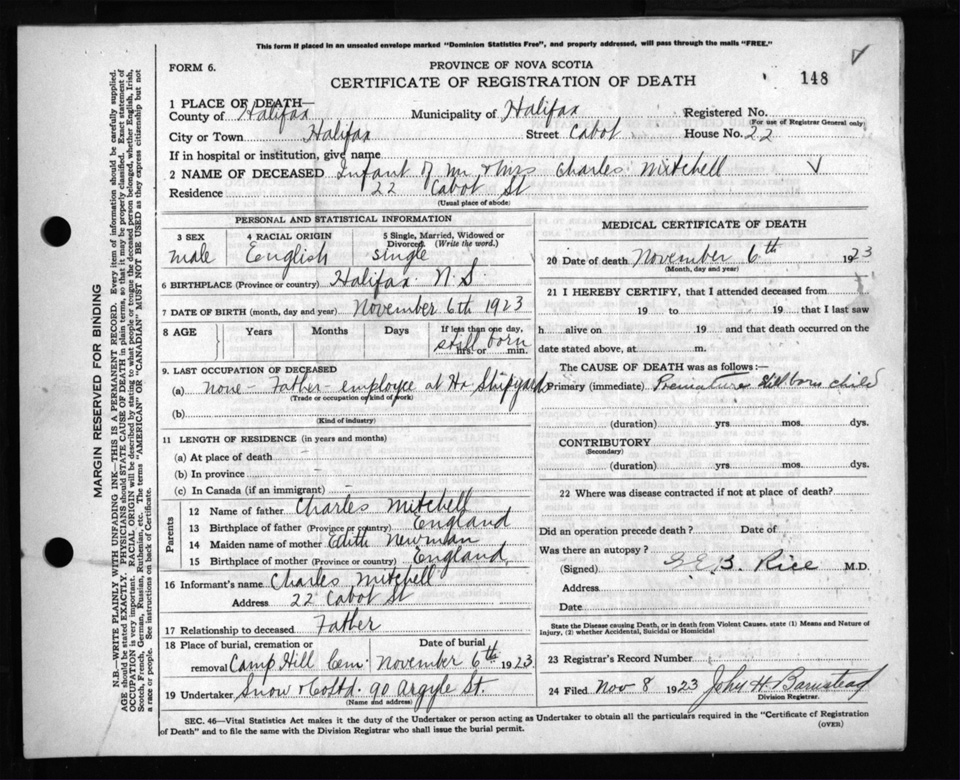 This form if placed in an unsealed envelope marked "Dominion Statistics Free", and properly addressed, will pass through the mails "FREE."
FORM 6.
PROVINCE OF NOVA SCOTIA
CERTIFICATE OF REGISTRATION OF DEATH
148
1 PLACE OF DEATH—
County of Halifax Municipality of Halifax Registered No.
(For use of Registrar General only)
City or Town Halifax Street Cabot House No. 22
If in hospital or institution, give name
2 NAME OF DECEASED Infant of Mr & Mrs Charles Mitchell
Residence 22 Cabot St
(Usual place of abode)
PERSONAL AND STATISTICAL INFORMATION
3 SEX 4 RACIAL ORIGIN 5 Single, Married, Widowed or Divorced (Write the word.)
male English single
6 BIRTHPLACE (Province or country) Halifax N.S
7 DATE OF BIRTH (month, day and year) November 6th 1923
8 AGE Years Months Days If less than one day,
still born
hrs. or min.
9. LAST OCCUPATION OF DECEASED
(a) none - Father - employee at Hx Shipyards
(Trade or occupation or kind of work)
(b)
(Kind of industry)
11 LENGTH OF RESIDENCE (in years and months)
(a) At place of death
(b) In province
(c) In Canada (if an immigrant)
Parents
12 Name of father Charles Mitchell
13 Birthplace of father (Province or country) England
14 Maiden name of mother Edith Newman
15 Birthplace of mother (Province or country) England
16 Informant's name Charles Mitchell
Address 22 Cabot St
17 Relationship to deceased Father
18 Place of burial, cremation or Date of burial
removal Camp Hill Cem. November 6th 1923
19 Undertaker Snow & Co Ltd. 90 Argyle St.
(Name and address)
MEDICAL CERTIFICATE OF DEATH
20 Date of death November 6th 1923
(Month, day and year)
21 I HEREBY CERTIFY, that I attended deceased from
19 to 19 that I last saw
h alive on 19 and that death occurred on the
date stated above, at m.
The CAUSE OF DEATH was as follows:—
Primary (immediate) Premature Stillborn child
(duration) yrs mos. dys.
CONTRIBUTORY
(Secondary)
(duration) yrs. mos. dys.
22 Where was disease contracted if not at place of death?
Did an operation precede death? Date of
Was there an autopsy?
(Signed) Rice M.D.
Address
Date
State the Disease causing Death, or in death from Violent Causes. state (1) Means and Nature of
Injury, (2) whether Accidental, Suicidal or Homicidal
23 Registrar's Record Number
24 Filed Nov 8 1923 John H Barnstead
Division Registrar.
SEC. 46—Vital Statistics Act makes it the duty of the Undertaker or person acting as Undertaker to obtain all the particulars required in the "Certificate of Registration
of Death" and to file the same with the Division Registrar who shall issue the burial permit.
(OVER)
MARGIN RESERVED FOR BINDING
N.B.—WRITE PLAINLY WITH UNFADING INK—THIS IS A PERMANENT RECORD. Every item of information should be carefully supplied.
AGE should be stated EXACTLY. PHYSICIANS should STATE CAUSE OF DEATH in plain terms, so that it may be properly classified. Exact statement of
OCCUPATION is very important. RACIAL ORIGIN will be described by stating to what people or tongue the deceased person belonged, whether English, Irish,
Scotch, French, German, Russian, Ruthenian, etc. The terms "AMERICAN" or "CANADIAN" MUST NOT BE USED as they express citizenship but not
a race or people. See instructions on back of Certificate.